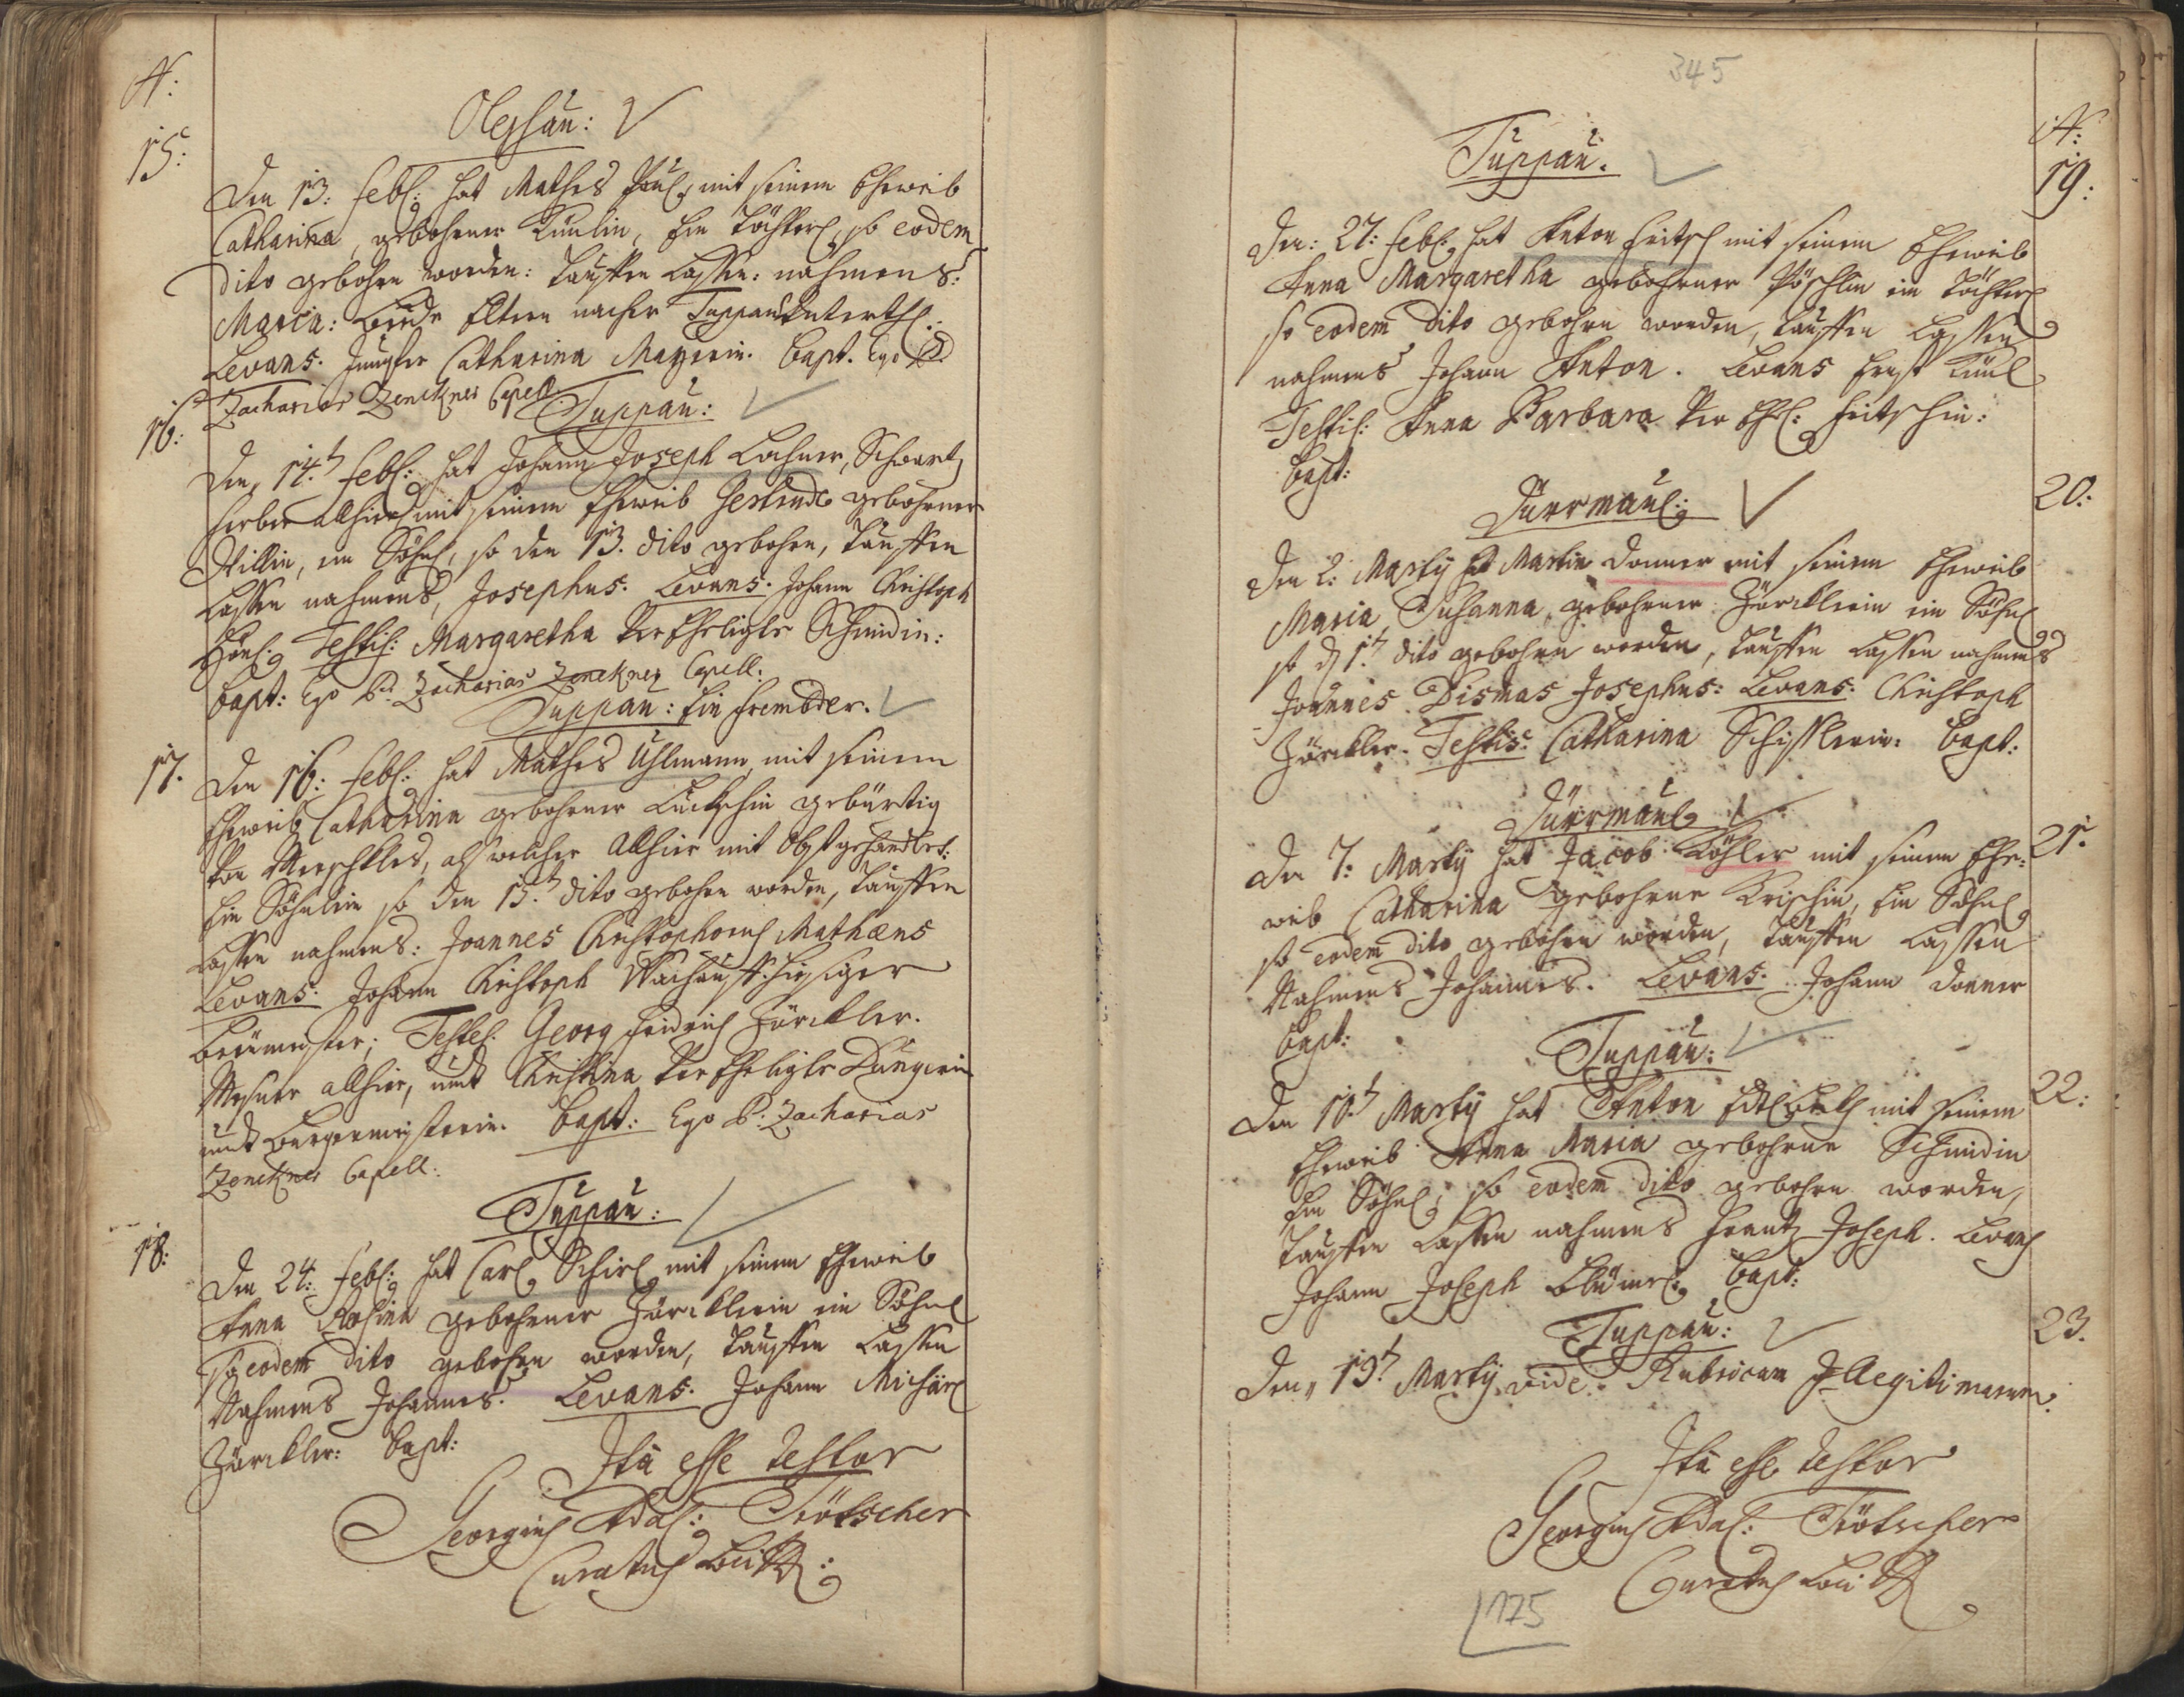 N:
15:
Oleghau:
Den 13: Febl: hat Mathes Paul, mit seinem Eheweib
Catharina, gebohrner Kunlin, Ein Töchterl, so eodem
dito gebohrn worden: Tauffen Lassen: nahmens:
Maria: beede Eltern nacher Tuppau
Levans: Jungfer Catharina Mayerin. Bapt. Ego P.
Zacharias Zenckner Capell.
16:
Tuppau:
Den 14.t Febl: hat Johann Joseph Lochner, Schwartz
Ferber allhier mit seinem Eheweib Gertrude gebohrner
Millin, ein Söhnl, so den 13. dito gebohrn, Tauffen
Lassen nahmens, Josephus. Levans. Johann Christoph
Testis: Margaretha Verehligte Schmidin:
bapt: Ego P. Zacharias Zenckner Capell:
Tuppau: Ein Frembder.
17.
Den 16: Febl: hat Mathes Uhlmann, mit seinem
Eheweib Catharina gebohrner gebürtig
von als welcher allhier mit Obst gehandlet:
Ein Söhnlein so den 15.t dito gebohrn worden, Tauffen
Lassen nahmens: Joannes Christophorus Mathæus
Levans: Johann Christoph hiesiger
Testes: Georg Fridrich Zörckler.
allhier, undt Christina Verehligte
undt Burgermeisterin. bapt: Ego P. Zacharias
Zenckner Capell:
Tuppau:
18:
Den 24: Febl: hat Carl Schirl mit seinem Eheweib
Anna Rosina gebohrner Zörcklerin ein Söhnl
so eodem dito gebohrn worden, Tauffen Lassen
Nahmens Johannes. Levans. Johann Michael
Zörckler: bapt:
Ita esse testor
Georgius Adal: Trötscher
Curatus Loci
345
N:
Tuppau:
19:
Den: 27: Febl: hat Anton Fritsch mit seinem Eheweib
Anna Margaretha gebohrner Pöschlin ein Töchterl
so eodem dito gebohrn worden, Tauffen Lassen
nahmens Johann Anton. Levans Ernst
Testis: Anna Barbara Ver Ehl: Fritschin:
bapt:
Dürrmaul:
20:
Den 2: Martij hat Martin Donner mit seinem Eheweib
Maria Susanna, gebohrner Zörcklerin ein Söhnl
so d 1.t dito gebohrn worden, Tauffen Lassen nahmens
Joannes Dismas Josephus: Levans: Christoph
Zörckler. Testis: Catharina bapt:
Dürrmaul
21.
Den 7: Martij hat Jacob Köhler mit seinem Ehe:
weib Catharina gebohrne Krischin, Ein Söhnl
so eodem dito gebohrn worden, Tauffen Lassen
Nahmens Johannes. Levans. Johann Donner
bapt:
Tuppau:
22:
Den 10.t Martij hat Anton mit seinem
Eheweib Anna Maria gebohrne Schmidin
Ein Söhnl, so eodem dito gebohrn worden,
Tauffen Lassen nahmens Frantz Joseph. Levans
Johann Joseph bapt:
Tuppau:
23.
Den 19.t Martij vide: Rubricam Illegitimarum.
Ita esse testor
Georgius Adal: Trötscher
Curatus Loci
175